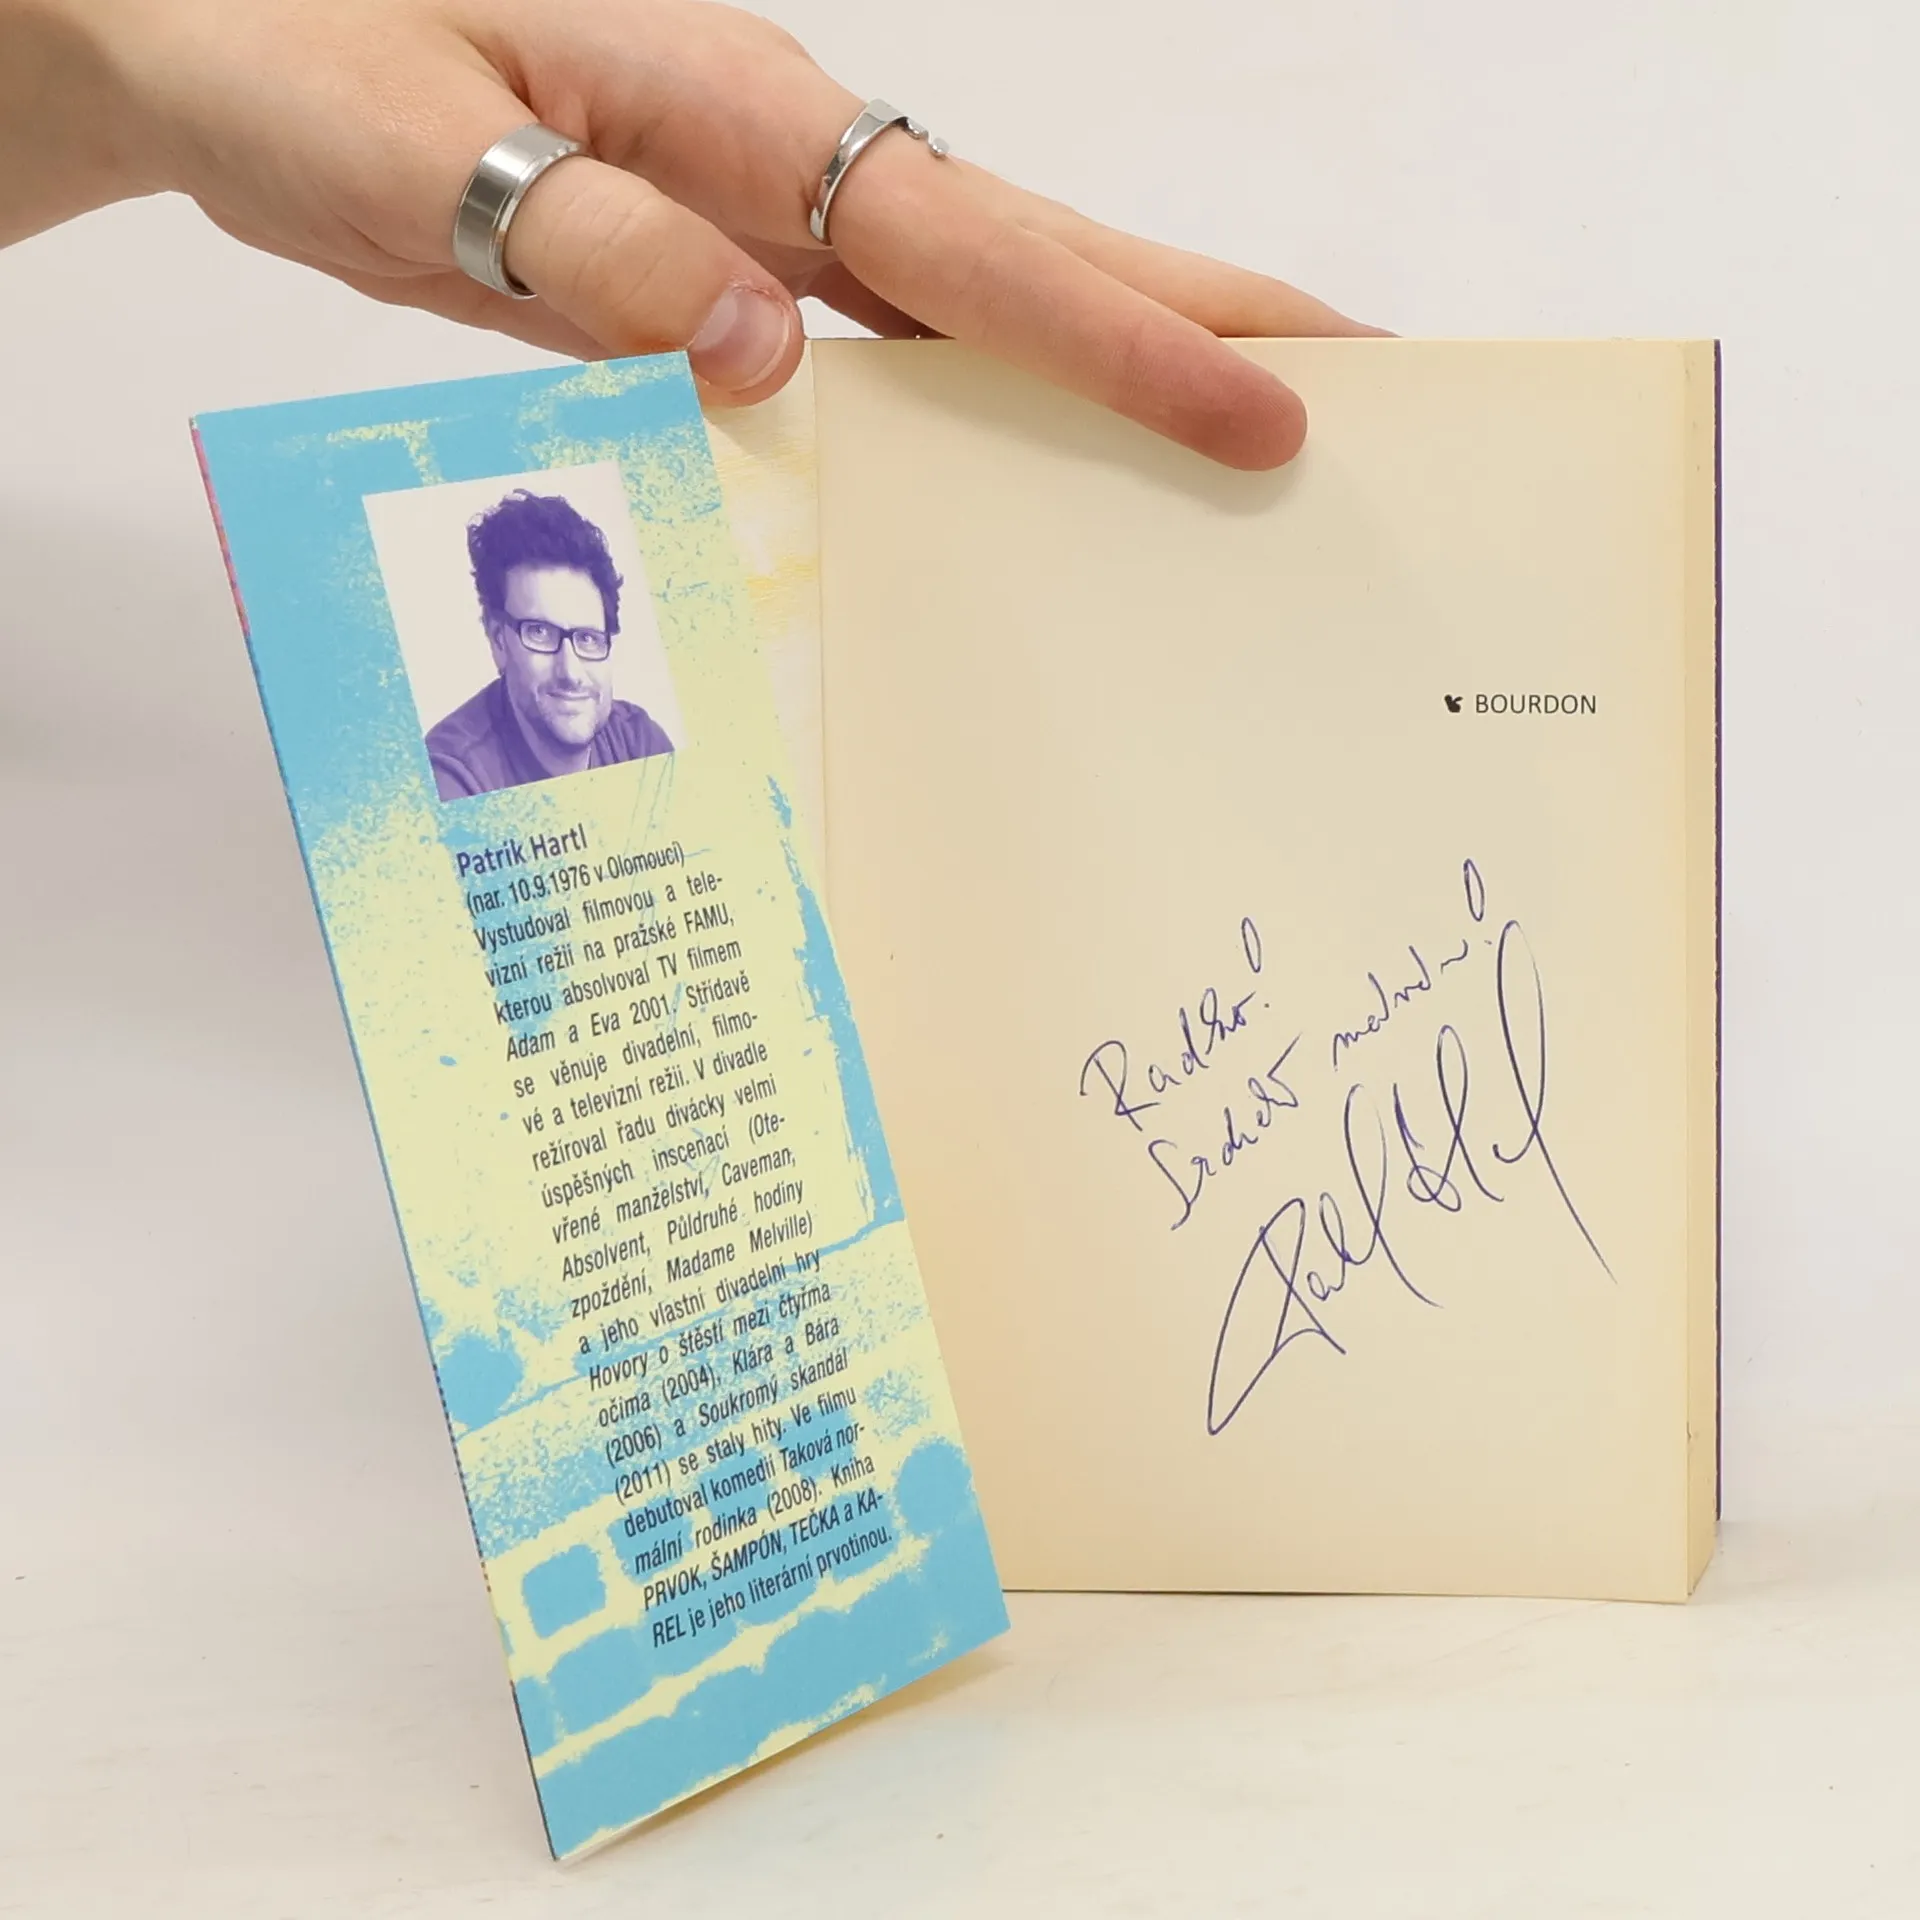 Patrik Hartl
(nar. 10.9.1976 v Olomouci)
Vystudoval filmovou a tele-
vizní režii na pražské FAMU,
kterou absolvoval TV filmem
Adam a Eva 2001. Střídavě
se věnuje divadelní, filmo-
vé a televizní režii. V divadle
režíroval řadu divácky velmi
úspěšných inscenací (Ote-
vřené manželství, Caveman,
Absolvent, Půldruhé hodiny
zpoždění, Madame Melville)
a jeho vlastní divadelní hry
Hovory o štěstí mezi čtyřma
očima (2004), Klára a Bára
(2006) a Soukromý skandál
(2011) se staly hity. Ve filmu
debutoval komedií Taková nor-
mální rodinka (2008). Kniha
PRVOK, ŠAMPÓN, TEČKA a KA-
REL je jeho literární prvotinou.
BOURDON